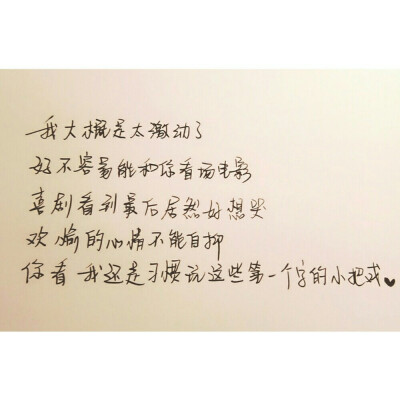 我大概是太激动了
好不容易能和你看场电影
喜剧看到最后居然好想哭
欢愉的心情不能自抑
你看 我还是习惯玩这些第一个字的小把戏♥